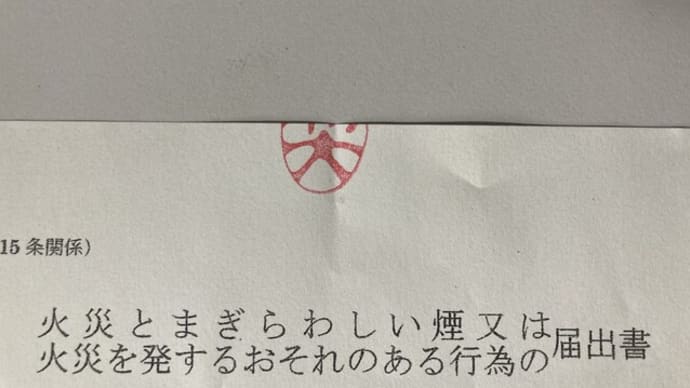 15条関係)
火災とまぎらわしい煙又は
火災を発するおそれのある行為の届出書